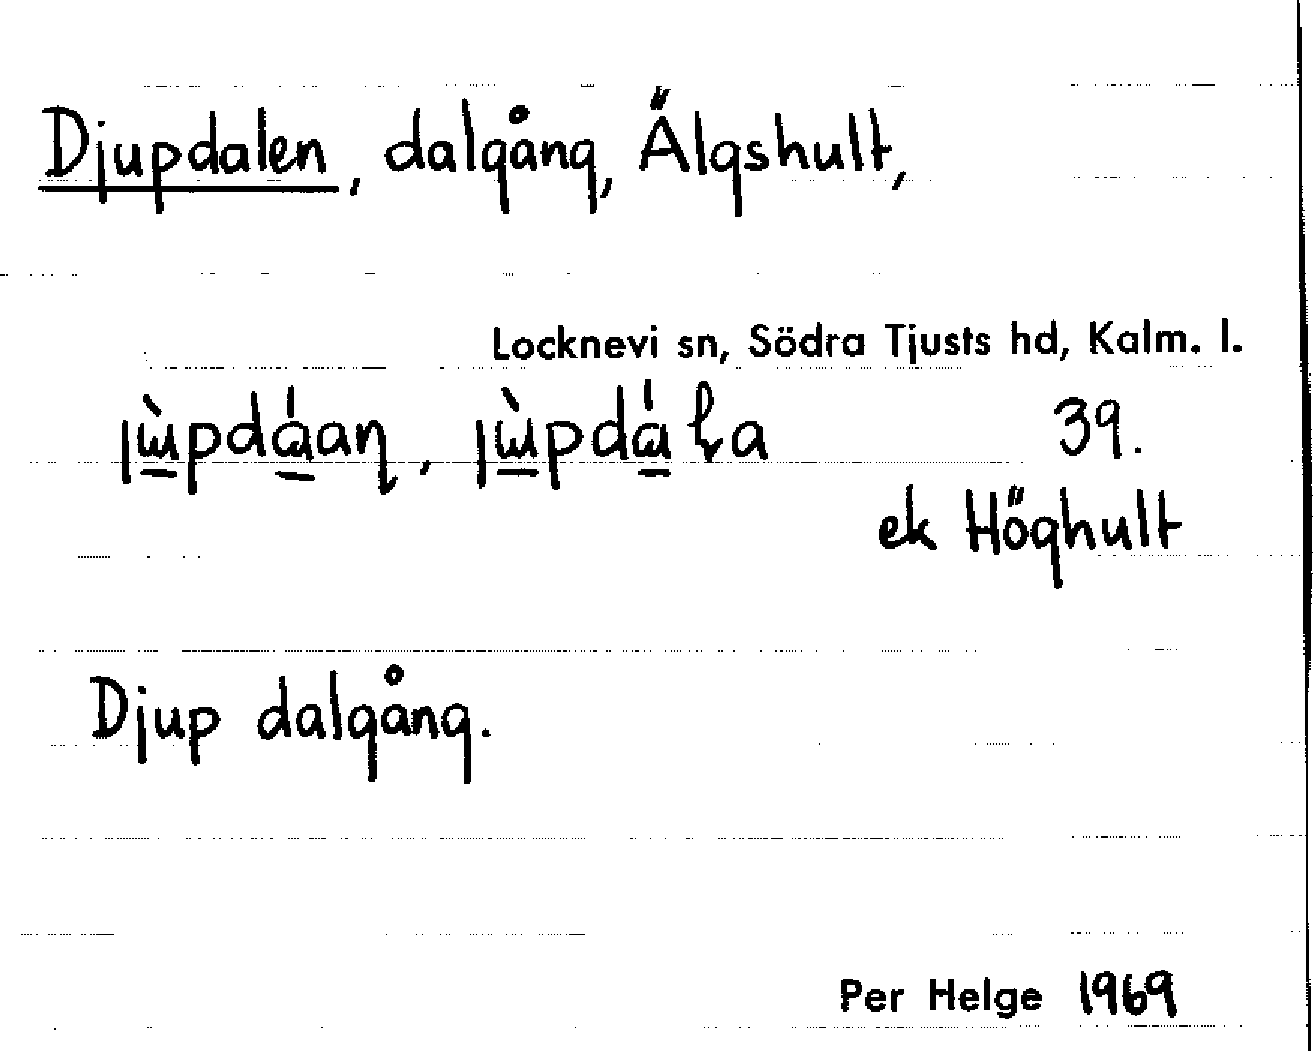 Djupdalen, dalgång, Älgshult,
Locknevi sn, Södra Tjusts hd, Kalm. l.
39.
ek Höghult
Djup dalgång.
Per Helge 1969